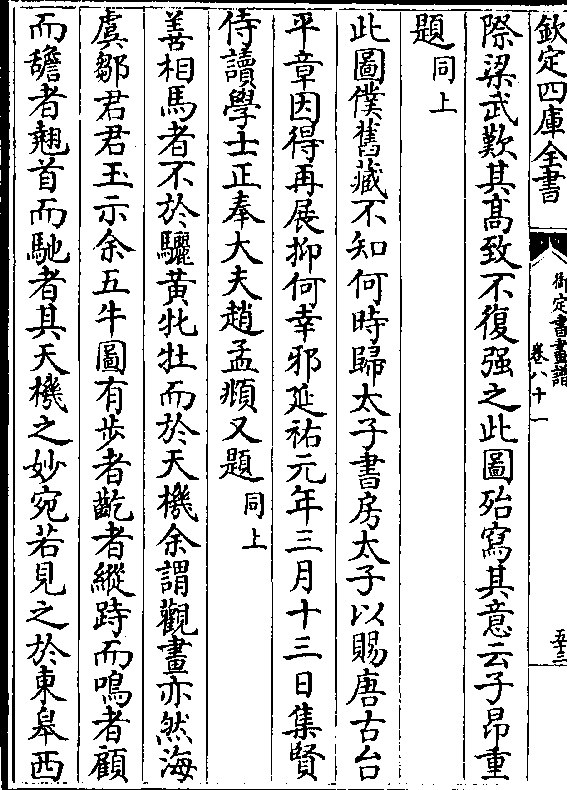 欽定四庫全書
御定書畫譜
卷八十一
五十三
際梁武歎其高致不復强之此圖殆寫其意云子昻重
題同上
此圖僕舊藏不知何時歸太子書房太子以賜唐古台
平章因得再展抑何幸邪延祐元年三月十三日集賢
侍讀學士正奉大夫趙孟頫又題同上
善相馬者不於驪黃牝牡而於天機余謂觀畫亦然海
虞鄒君君玉示余五牛圖有步者齕者縱跱而鳴者顧
而䑛者翹首而馳者其天機之妙宛若見之於東皋西